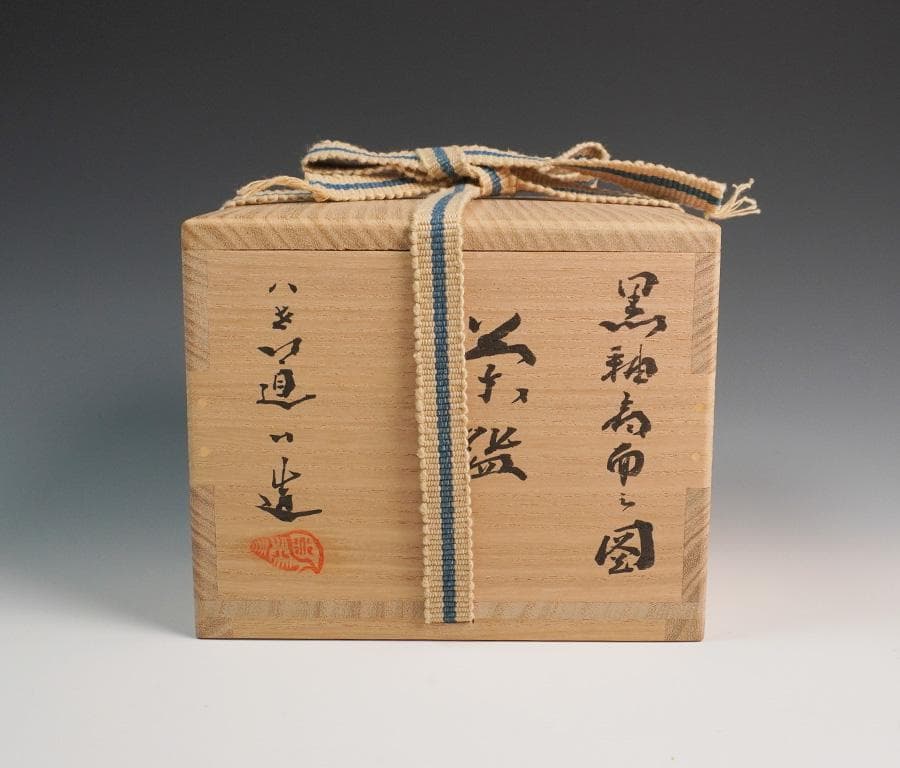 黒釉扇面之図
茶盌
八世道八造